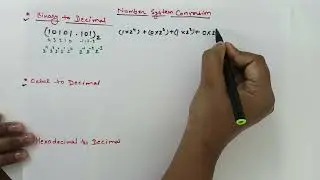 Number System Conversion
Binary to Decimal
(10101.101)₂ (1×2⁴) + (0×2³) + (1×2²) + 0×2
4 3 2 1 0 -1 -2 -3
2⁴ 2³ 2² 2¹ 2⁰ 2⁻¹ 2⁻² 2⁻³
Octal to Decimal
Hexadecimal to Decimal